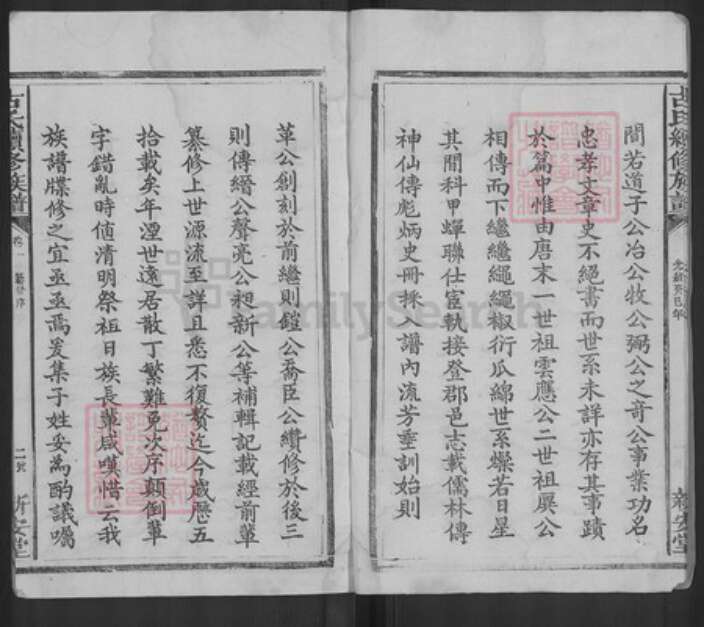 間若道子公冶公牧公弼公之奇公事業功名
忠孝文章史不絕書而世系未詳亦存其事蹟
於篇中惟由唐末一世祖雲應公二世祖㞕公
相傳而下繼繼繩繩椒衍瓜綿世系燦若日星
其間科甲蟬聯仕宦軌接登郡邑志載儒林傳
神仙傳彪炳史冊採入譜內流芳垂訓始則
古氏續修族譜
光緒癸巳年
新安堂
革公創刻於前繼則鎧公喬臣公纘修於後三
則傳縉公聲亮公昶新公等補輯記載經前輩
纂修上世源流至詳且悉不復贅迄今歲歷五
拾載矣年湮世遠居散丁繁難免次序顛倒輩
字錯亂時值清明祭祖日族長輩咸嘆惜云我
族譜牒修之宜亟亟焉爰集子姓妥為酌議囑
古氏續修族譜
卷一
序
二
新安堂
FamilySearch